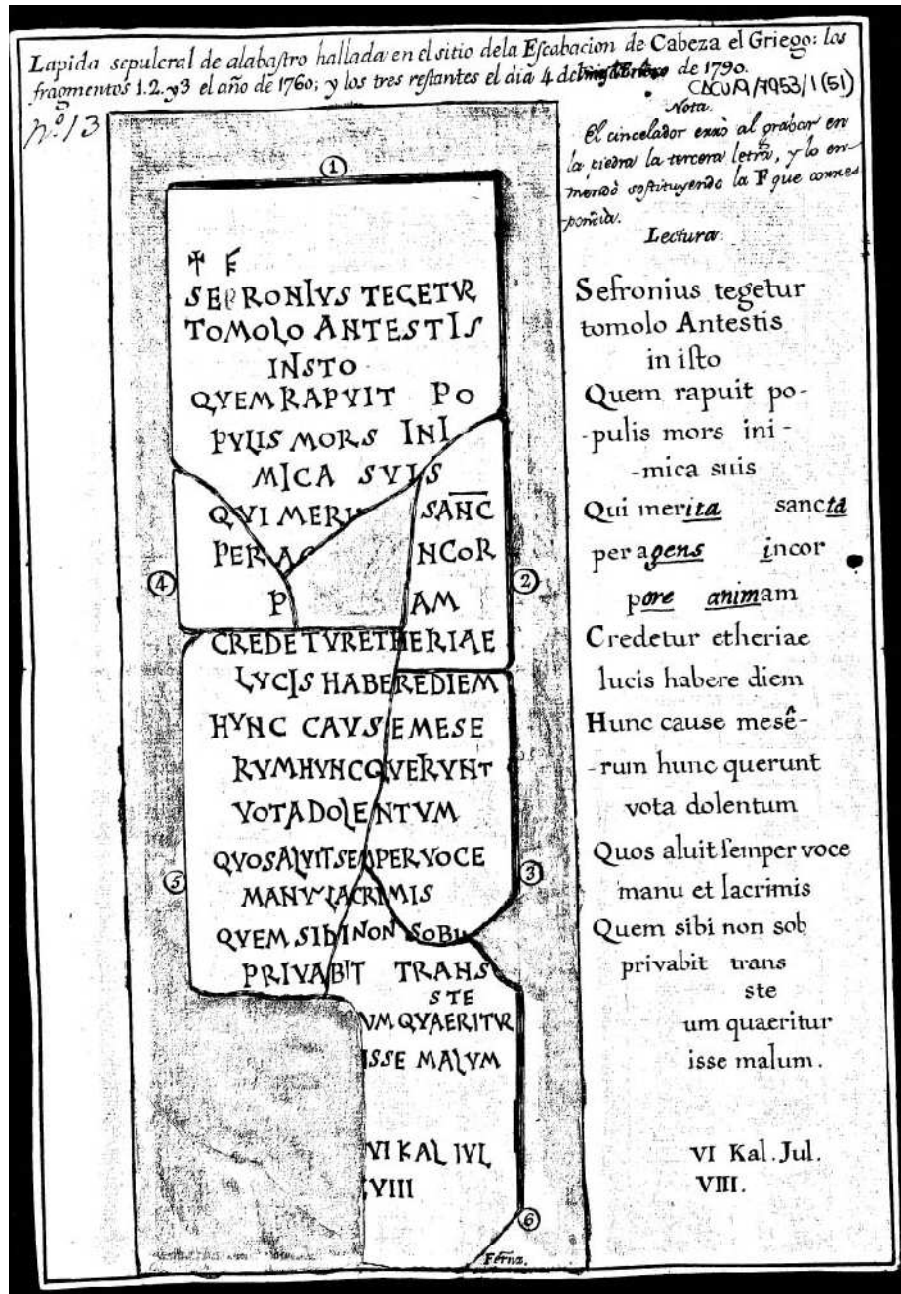 Lapida sepulcral de alabastro hallada en el sitio dela Escabacion de Cabeza el Griego: los
fragmentos 1. 2. y 3 el año de 1760; y los tres restantes el dia 4 de de 1790.
CACU/9/7953/1(51)
nº 13
Nota.
El cincelador errò al grabar en
la piedra la tercera letra, y lo en-
mendò sostituyendo la F que corres
-pondia.
Lectura.
①
✝ F
SEPRONIVS TEGETVR
TOMOLO ANTESTIS
INSTO
QVEM RAPVIT PO
PVLIS MORS INI
MICA SVIS
QVI MERI SANC
PER AG NCOR
P AM
CREDETVR ETHERIAE
LVCIS HABEREDIEM
HVNC CAVSEMESE
RVMHVNCQVERVNT
VOTADOLENTVM
QVOSALVITSEMPERVOCE
MANVLACRIMIS
QVEM SIBI NON SOBV
PRIVABIT TRANS
STE
VM QVAERITVR
ISSE MALVM
VI KAL IVL
VIII
④
②
⑤
③
⑥
Ferna.
Sefronius tegetur
tomolo Antestis
in isto
Quem rapuit po-
-pulis mors ini-
-mica suis
Qui merita sancta
per agens incor
pore animam
Credetur etheriae
lucis habere diem
Hunc cause mesê-
-rum hunc querunt
vota dolentum
Quos aluit semper voce
manu et lacrimis
Quem sibi non sob
privabit trans
ste
um quaeritur
isse malum.
VI Kal. Jul.
VIII.